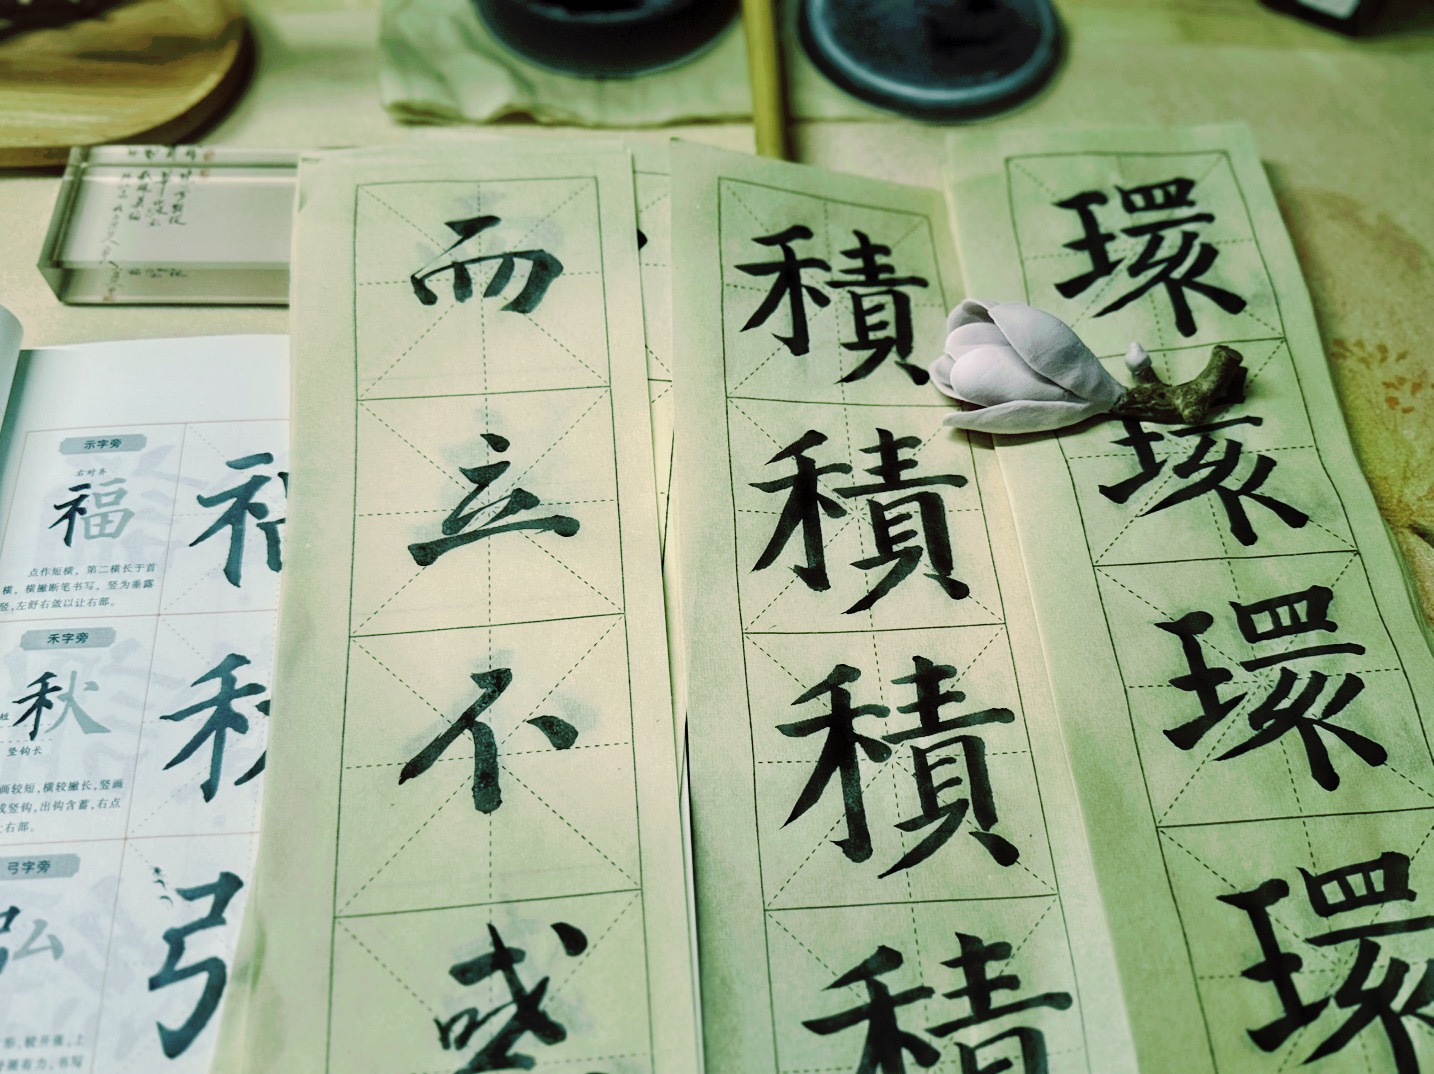 示字旁
右对齐
福
点作短横，第二横长于首
横，横撇断笔书写，竖为垂露
竖，左舒右敛以让右部。
禾字旁
短
秋
竖钩长
画较短，横较撇长，竖画
竖钩，出钩含蓄，右点
右部。
弓字旁
弘
弓
上
有力，书写
而立不惑
積積積積
環環環環